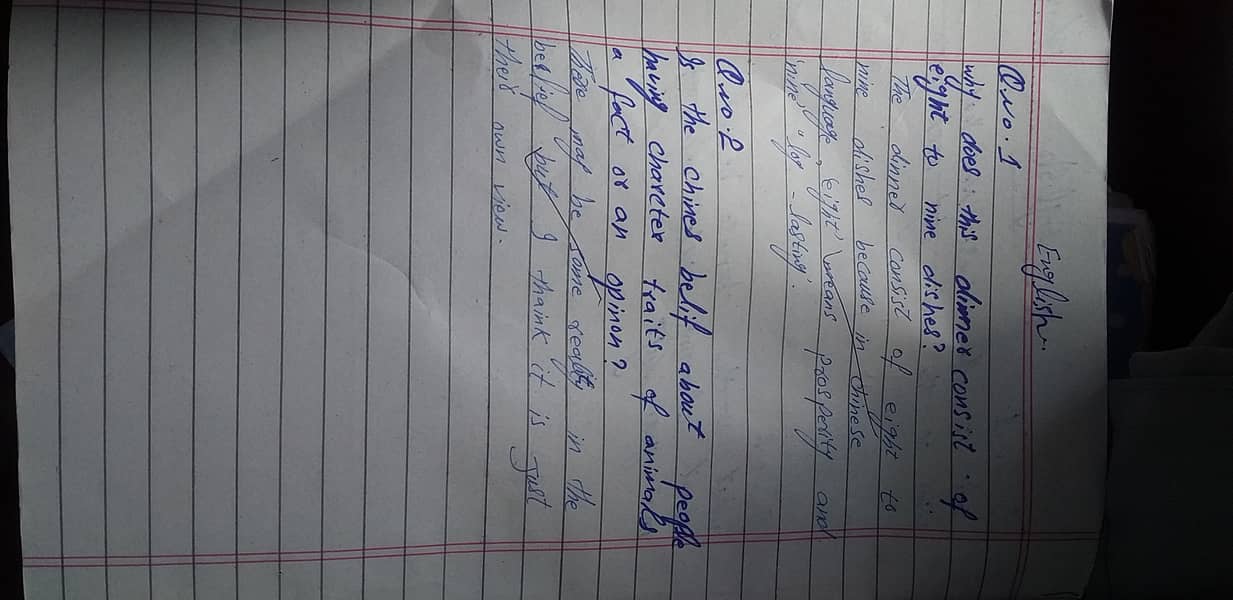 English.
Q.no.1
why does this dinner consist of
eight to nine dishes?
The dinner consist of eight to
nine dishes because in chinese
language, 'eight' means prosperity and
'nine' "log-lasting'.
Q.no.2
Is the chines belif about people
having charetex traits of animals
a fact or an opinon?
There may be some reality in the
beslief but I thaink it is Just
their own view.